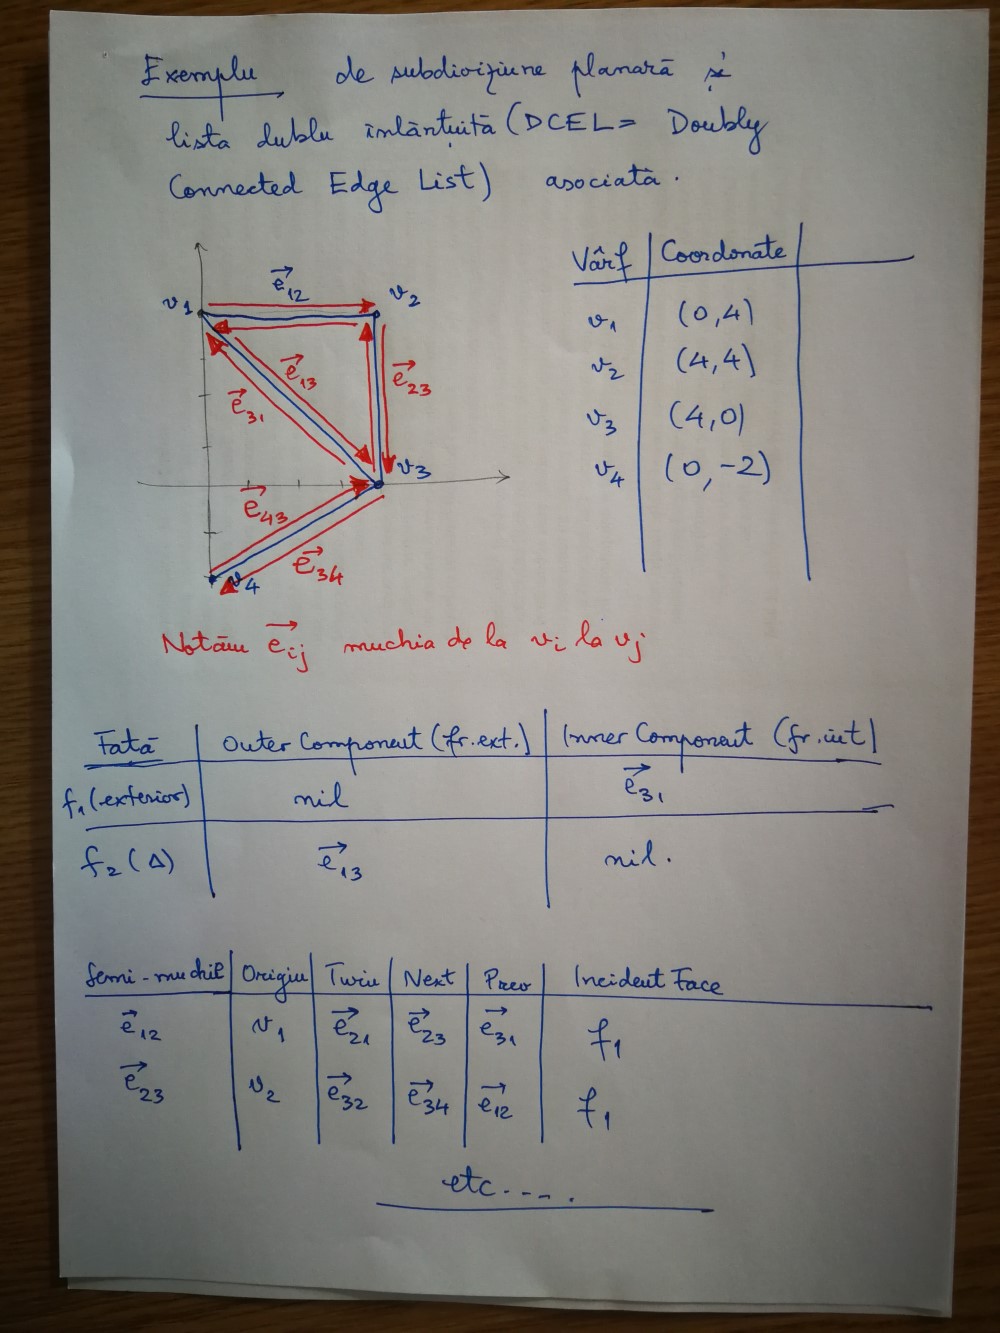 Exemplu de subdiviziune planară și
lista dublu înlănțuită (DCEL = Doubly
Connected Edge List) asociată.
Vârf | Coordonate |
v1 (0,4)
v2 (4,4)
v3 (4,0)
v4 (0,-2)
v1 e12 v2
e13 e23
e31
v3
e43
e34
v4
Notăm eij muchia de la vi la vj
Fată | Outer Component (fr.ext.) | Inner Component (fr.int)
f1 (exterior) | nil | e31
f2 (Δ) | e13 | nil.
Semi-muchie | Origin | Twin | Next | Prev | Incident Face
e12 | v1 | e21 | e23 | e31 | f1
e23 | v2 | e32 | e34 | e12 | f1
etc.....